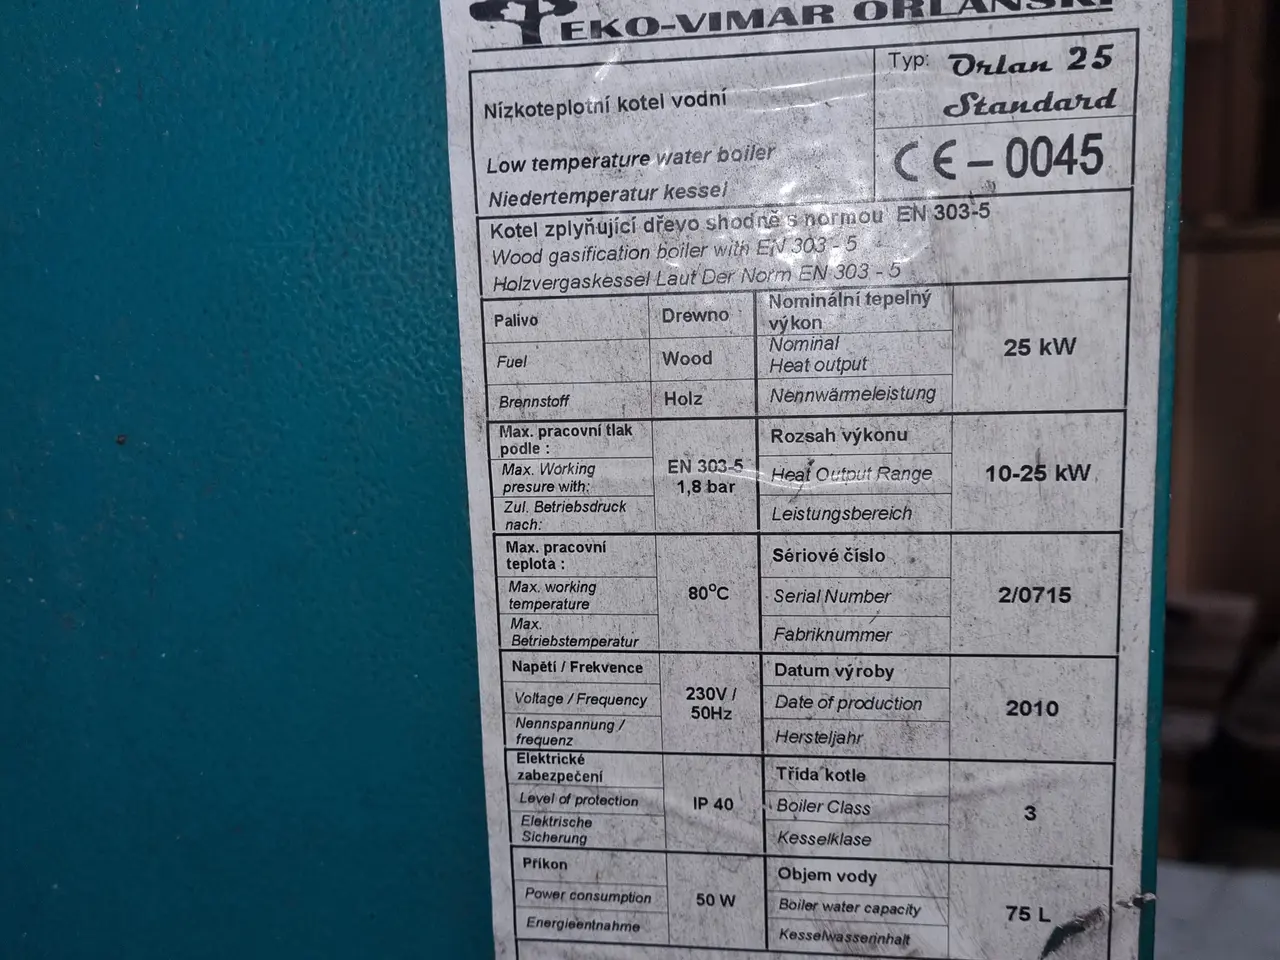 EKO-VIMAR ORLAŃSKI
Nízkoteplotní kotel vodní
Low temperature water boiler
Niedertemperatur kessel
Typ: Orlan 25
Standard
CE-0045
Kotel zplyňující dřevo shodně s normou EN 303-5
Wood gasification boiler with EN 303 - 5
Holzvergaskessel Laut Der Norm EN 303 - 5
Palivo
Drewno
Fuel
Wood
Brennstoff
Holz
Nominální tepelný
výkon
Nominal
Heat output
Nennwärmeleistung
25 kW
Max. pracovní tlak
podle :
Max. Working
presure with:
Zul. Betriebsdruck
nach:
EN 303-5
1,8 bar
Rozsah výkonu
Heat Output Range
Leistungsbereich
10-25 kW
Max. pracovní
teplota :
Max. working
temperature
Max.
Betriebstemperatur
80°C
Sériové číslo
Serial Number
Fabriknummer
2/0715
Napětí / Frekvence
Voltage / Frequency
Nennspannung /
frequenz
230V /
50Hz
Datum výroby
Date of production
Hersteljahr
2010
Elektrické
zabezpečení
Level of protection
Elektrische
Sicherung
IP 40
Třída kotle
Boiler Class
Kesselklase
3
Příkon
Power consumption
Energieentnahme
50 W
Objem vody
Boiler water capacity
Kesselwasserinhalt
75 L